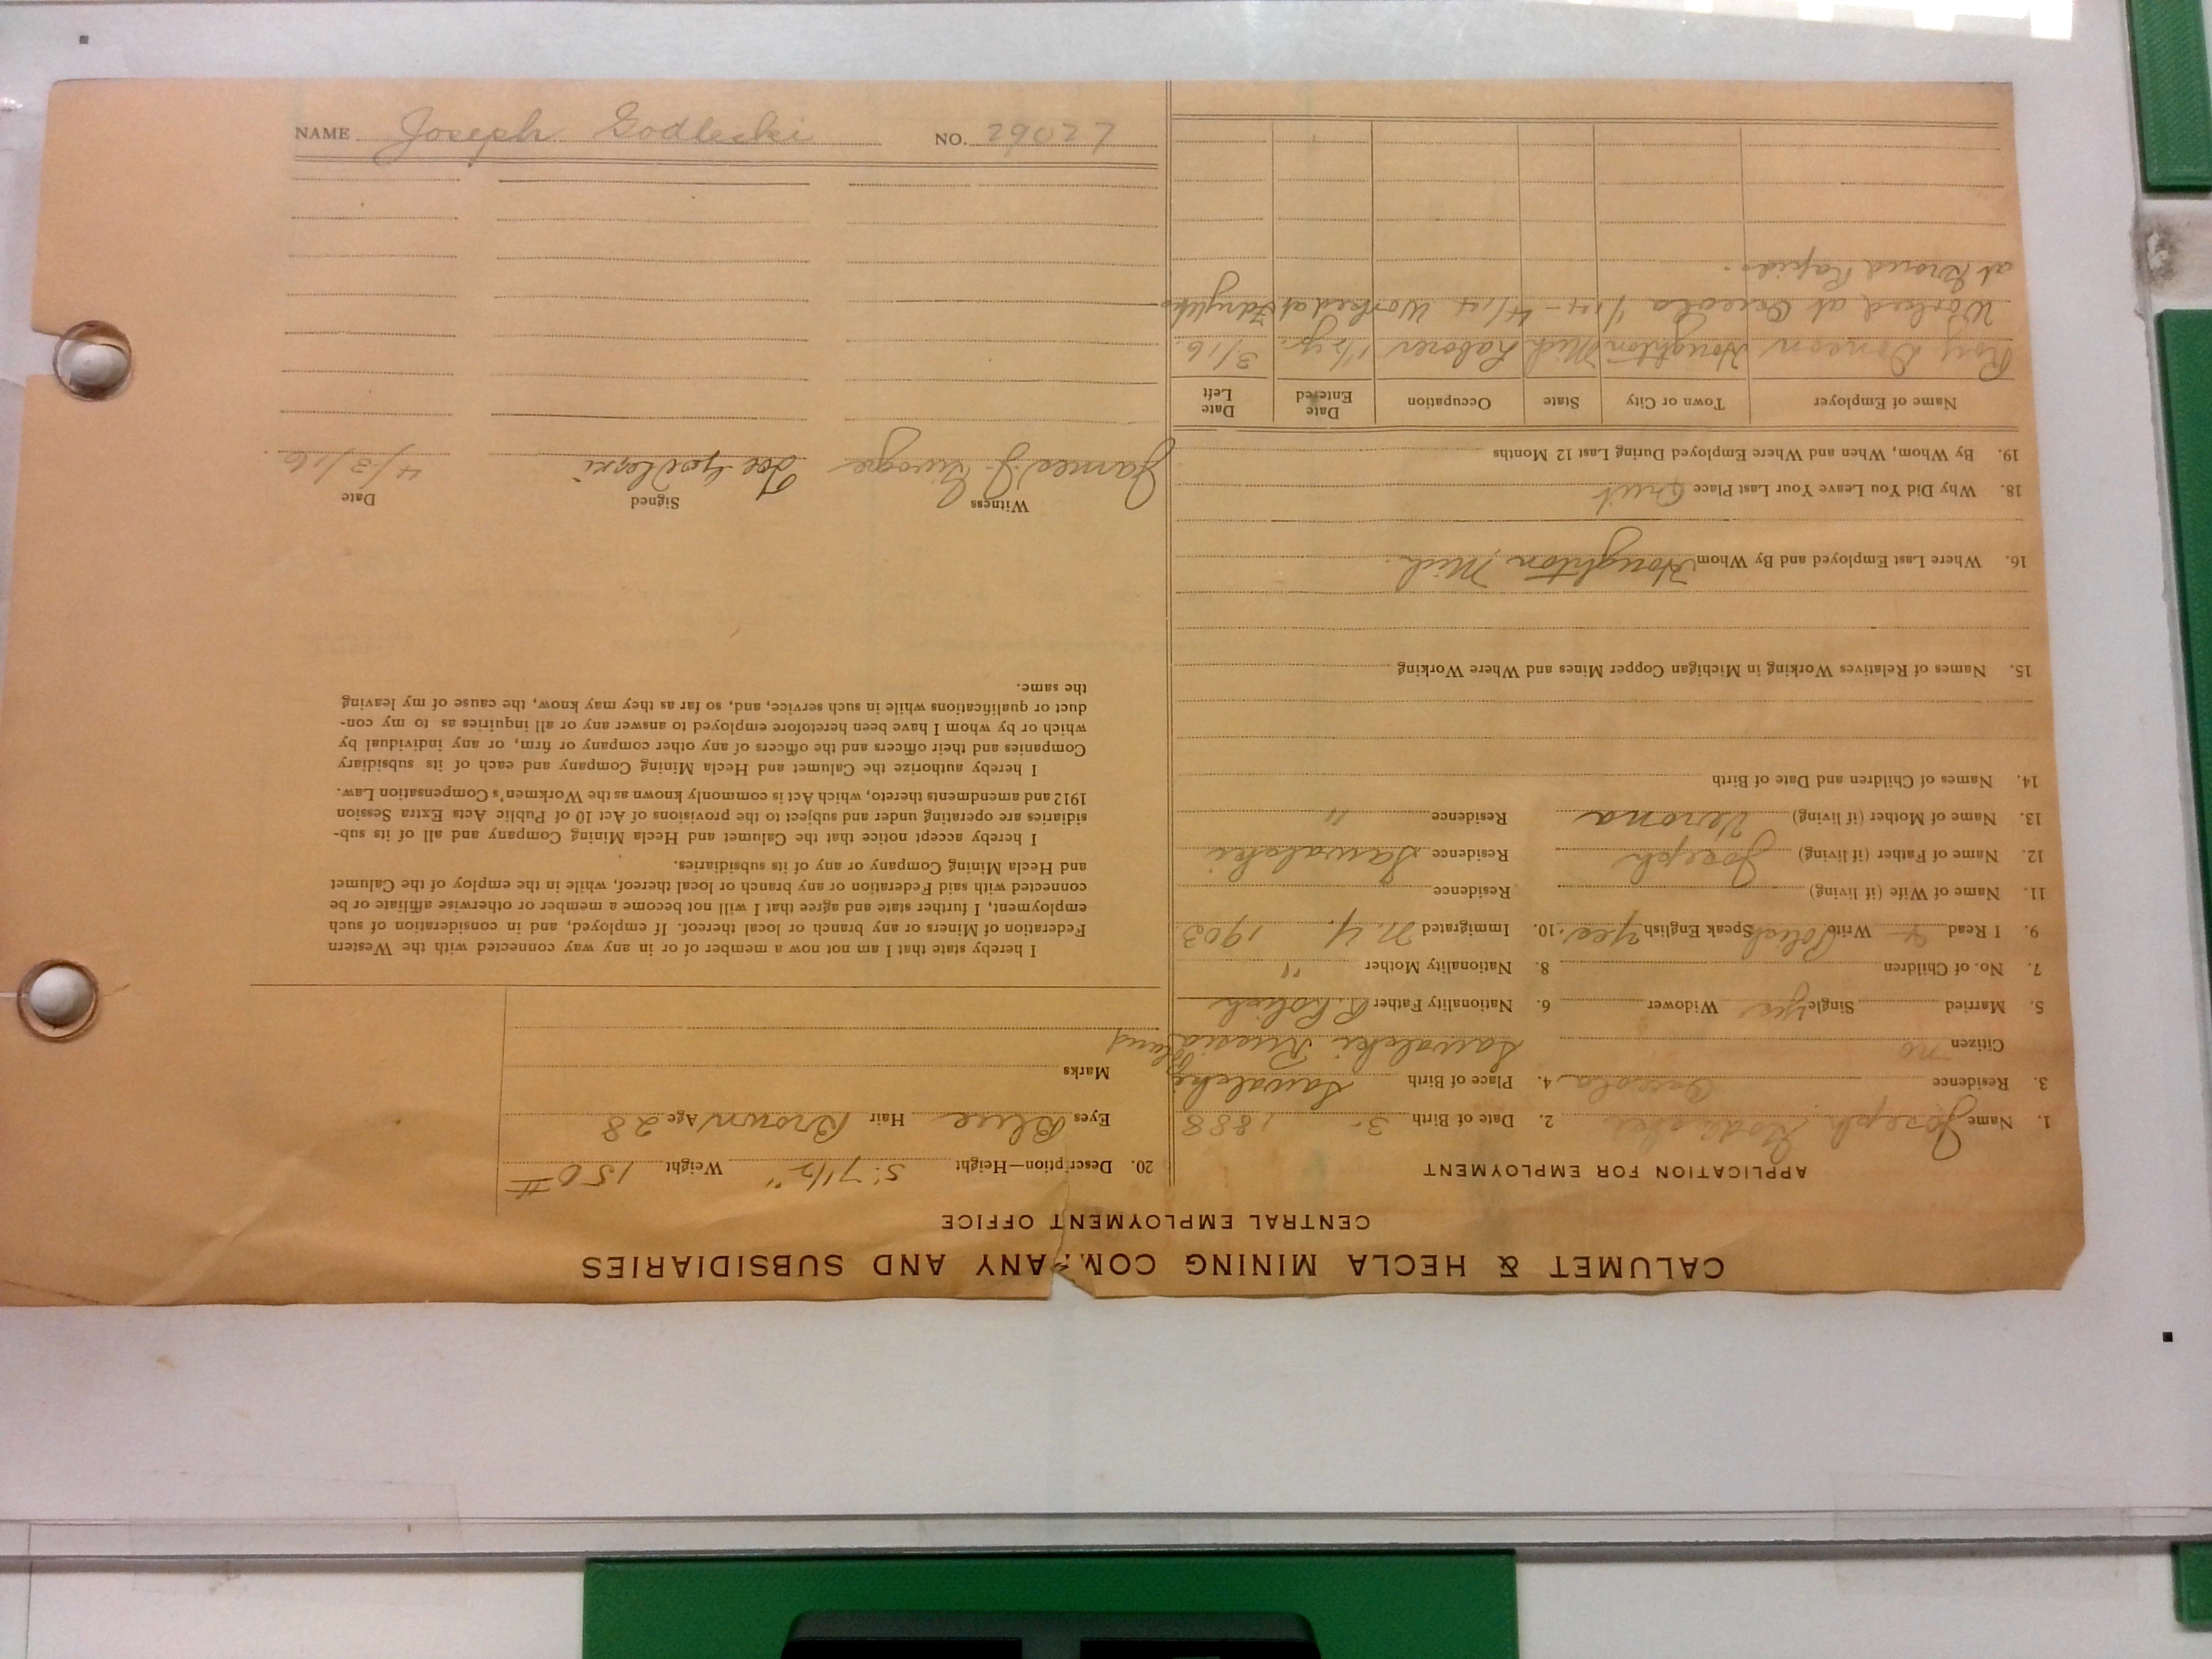 CALUMET & HECLA MINING COMPANY AND SUBSIDIARIES
CENTRAL EMPLOYMENT OFFICE
APPLICATION FOR EMPLOYMENT
1. Name Joseph Godleski 2. Date of Birth 3. 1888
3. Residence Osceola 4. Place of Birth Suwalski
Citizen no Suwalski Russia Poland
5. Married Single yes Widower 6. Nationality Father Polish
7. No. of Children 8. Nationality Mother "
9. I Read + Write Polish Speak English yes. 10. Immigrated N.Y. 1903
11. Name of Wife (if living) Residence
12. Name of Father (if living) Joseph Residence Suwalski
13. Name of Mother (if living) Verona Residence "
14. Names of Children and Date of Birth
15. Names of Relatives Working in Michigan Copper Mines and Where Working
16. Where Last Employed and By Whom Houghton, Mich.
18. Why Did You Leave Your Last Place Quit
19. By Whom, When and Where Employed During Last 12 Months
Name of Employer Town or City State Occupation Date Entered Date Left
Roy Houghton Mich Laborer 1½ yr. 3/16.
Worked at Osceola 1/14 - 4/14 Worked at
at Grand Rapids.
20. Description—Height 5' 7½" Weight 150 #
Eyes Blue Hair Brown Age 28
Marks
I hereby state that I am not now a member of or in any way connected with the Western
Federation of Miners or any branch or local thereof. If employed, and in consideration of such
employment, I further state and agree that I will not become a member or otherwise affiliate or be
connected with said Federation or any branch or local thereof, while in the employ of the Calumet
and Hecla Mining Company or any of its subsidiaries.
I hereby accept notice that the Calumet and Hecla Mining Company and all of its sub-
sidiaries are operating under and subject to the provisions of Act 10 of Public Acts Extra Session
1912 and amendments thereto, which Act is commonly known as the Workmen's Compensation Law.
I hereby authorize the Calumet and Hecla Mining Company and each of its subsidiary
Companies and their officers and the officers of any other company or firm, or any individual by
which or by whom I have been heretofore employed to answer any or all inquiries as to my con-
duct or qualifications while in such service, and, so far as they may know, the cause of my leaving
the same.
Witness Signed Date
James J. Joe Godleski 4/3/16.
NAME Joseph Godleski NO. 29027